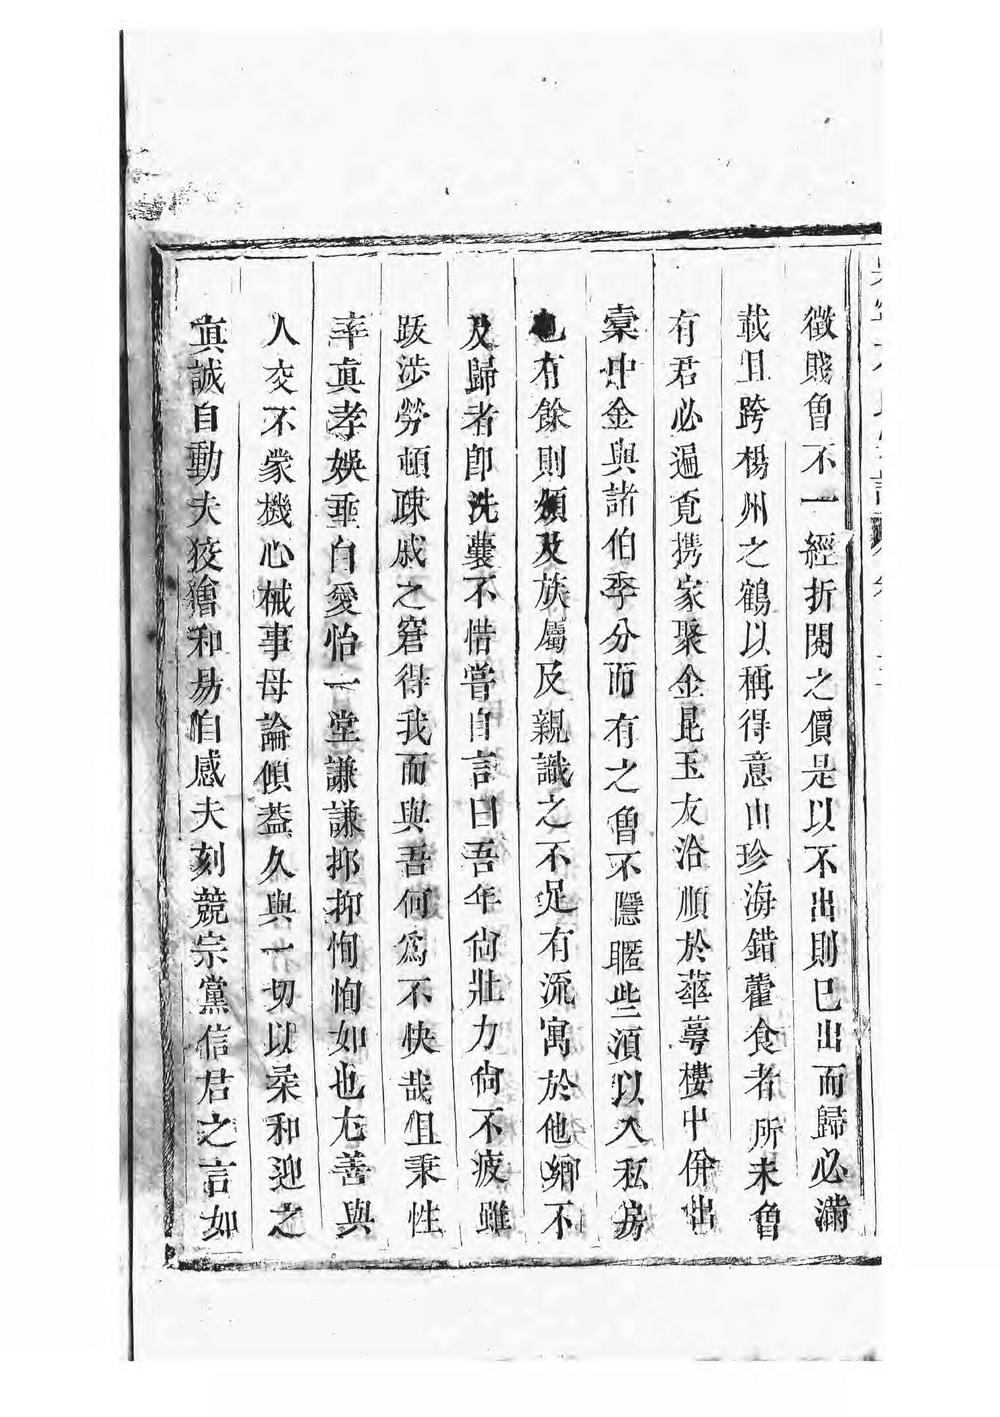 徵賤曾不一經折閱之價是以不出則已出而歸必滿
載且跨楊州之鶴以稱得意山珍海錯藿食者所未曾
有君必遍覓携家聚金昆玉友洽順於華萼樓中倂出
橐中金與諸伯季分而有之曾不隱匿些湏以入私房
也有餘則頒及族屬及親識之不足有流寓於他鄉不
及歸者卽洗囊不惜嘗自言曰吾年尙壯力尙不疲雖
跋涉勞頓疎戚之窘得我而與吾何為不快哉但秉性
率眞孝娛垂白愛怡一堂謙謙抑抑恂恂如也尤善與
人交不蒙機心械事母論傾蓋久與一切以柔和迎之
眞誠自動夫狡獪和易自感夫刻競宗黨信君之言如